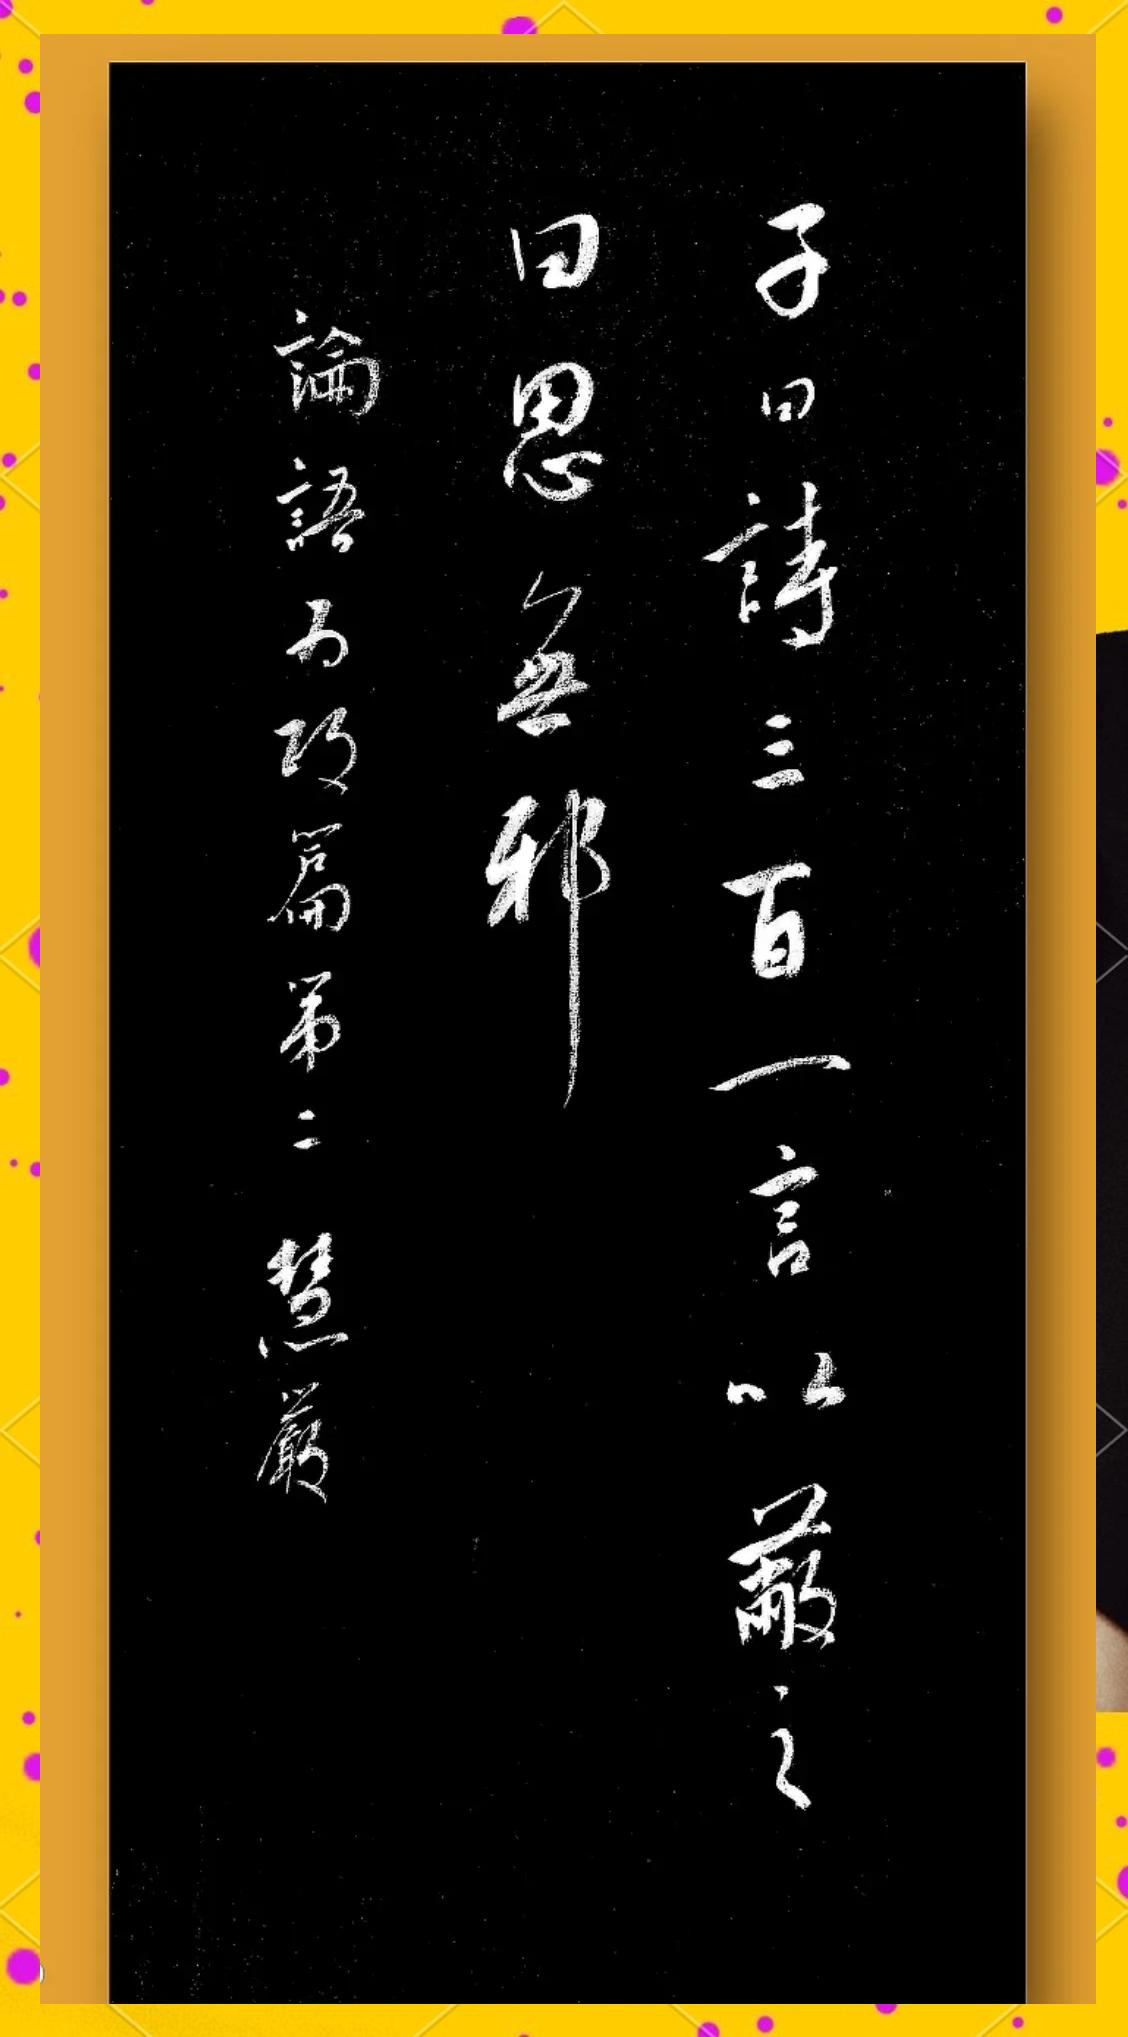 子曰詩三百一言以蔽之
曰思無邪
論語為政篇第二 慧嚴